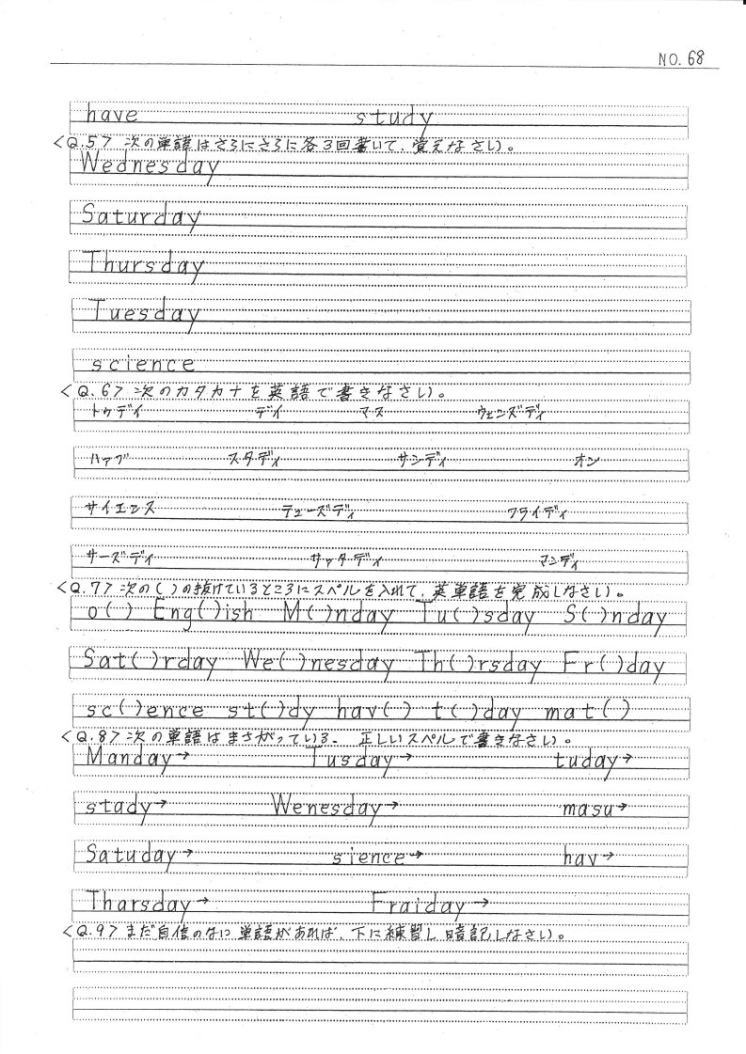 NO. 68
have study
<Q.5> 次の単語はさらにさらに各3回書いて、覚えなさい。
Wednesday
Saturday
Thursday
Tuesday
science
<Q.6> 次のカタカナを英語で書きなさい。
トゥデイ デイ マス ウェンズディ
ハァブ スタディ サンディ オン
サイエンス テューズディ フライディ
サーズディ サァタディ マンディ
<Q.7> 次の( )の抜けているところにスペルを入れて、英単語を完成しなさい。
o( ) Eng( )ish M( )nday Tu( )sday S( )nday
Sat( )rday We( )nesday Th( )rsday Fr( )day
sc( )ence st( )dy hav( ) t( )day mat( )
<Q.8> 次の単語はまちがっている. 正しいスペルで書きなさい。
Manday→ Tusday→ tuday→
stady→ Wenesday→ masu→
Satuday→ sience→ hav→
Tharsday→ Fraiday→
<Q.9> まだ自信のない単語があれば、下に練習し暗記しなさい。